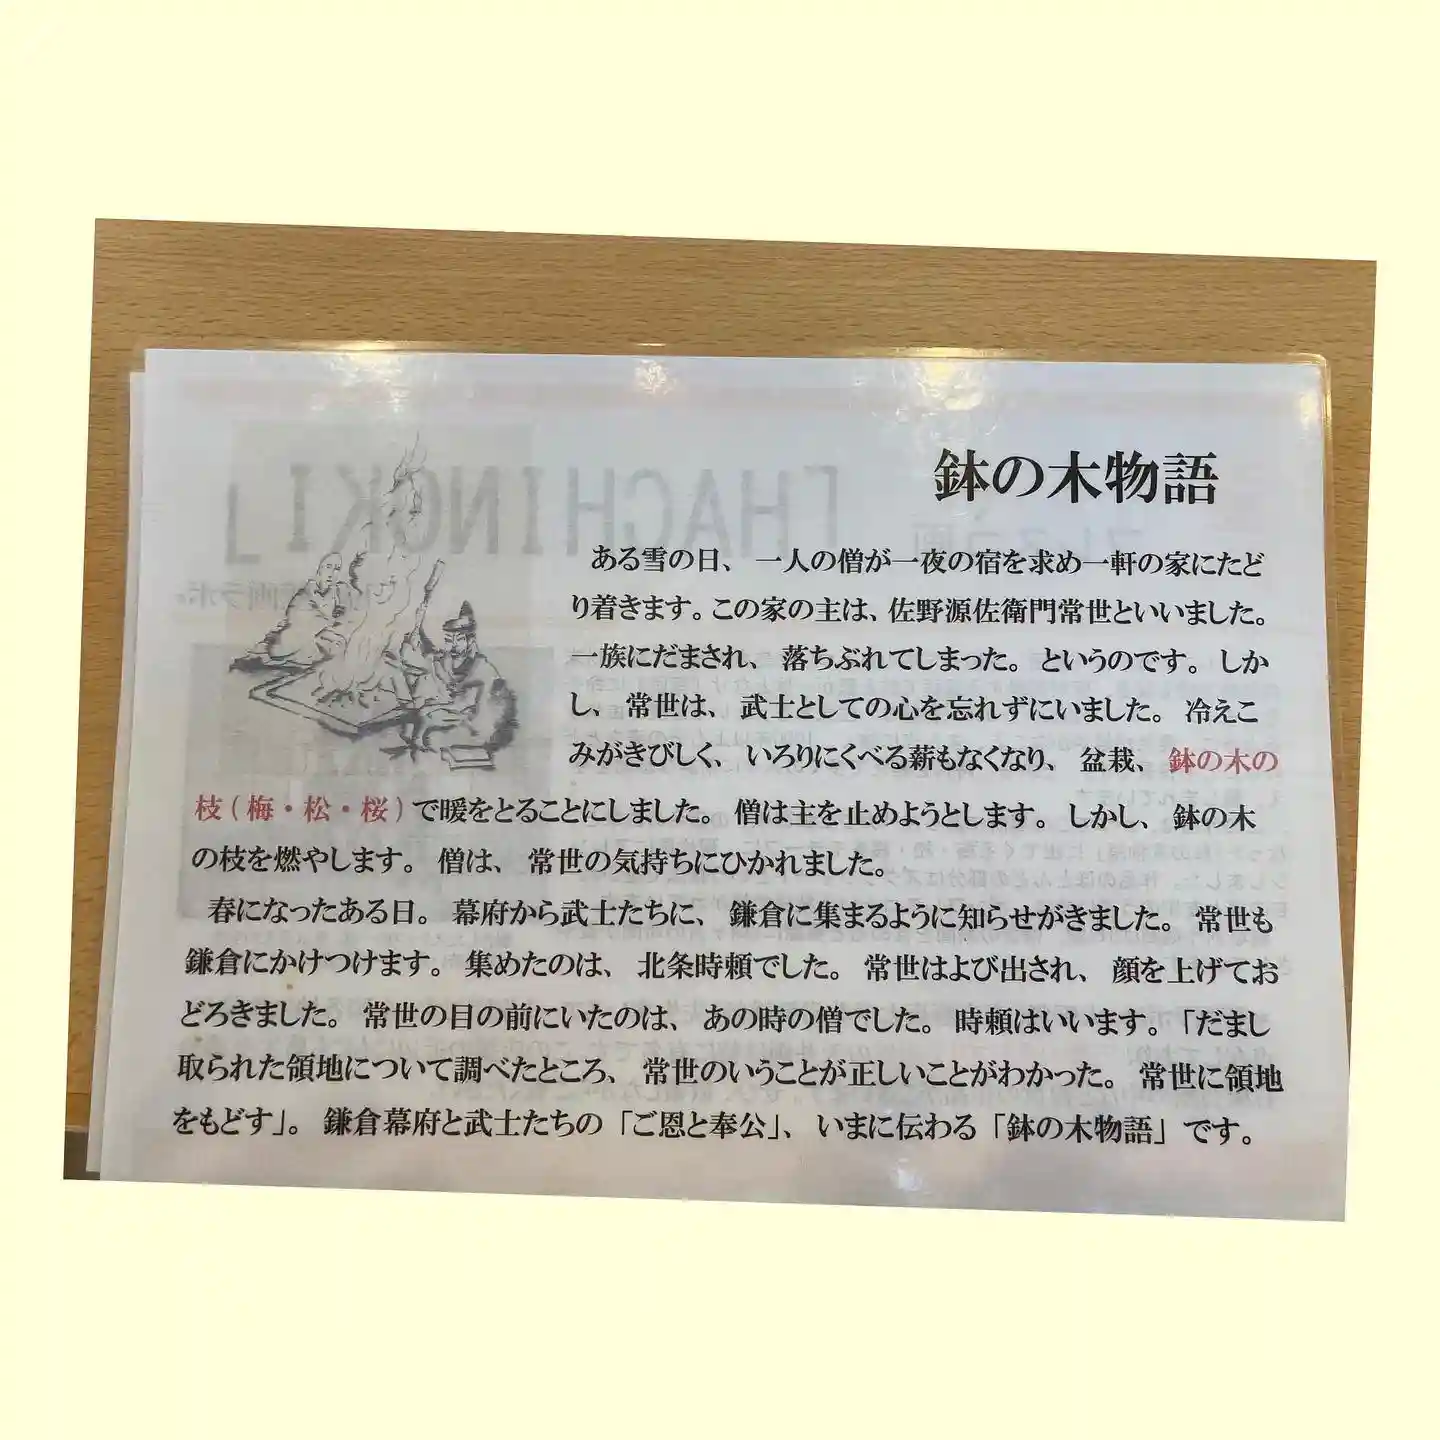 鉢の木物語
ある雪の日、一人の僧が一夜の宿を求め一軒の家にたど
り着きます。この家の主は、佐野源佐衛門常世といいました。
一族にだまされ、落ちぶれてしまった。というのです。しか
し、常世は、武士としての心を忘れずにいました。冷えこ
みがきびしく、いろりにくべる薪もなくなり、盆栽、鉢の木の
枝(梅・松・桜)で暖をとることにしました。僧は主を止めようとします。しかし、鉢の木
の枝を燃やします。僧は、常世の気持ちにひかれました。
春になったある日。幕府から武士たちに、鎌倉に集まるように知らせがきました。常世も
鎌倉にかけつけます。集めたのは、北条時頼でした。常世はよび出され、顔を上げてお
どろきました。常世の目の前にいたのは、あの時の僧でした。時頼はいいます。「だまし
取られた領地について調べたところ、常世のいうことが正しいことがわかった。常世に領地
をもどす」。鎌倉幕府と武士たちの「ご恩と奉公」、いまに伝わる「鉢の木物語」です。
「HACHINOKI」